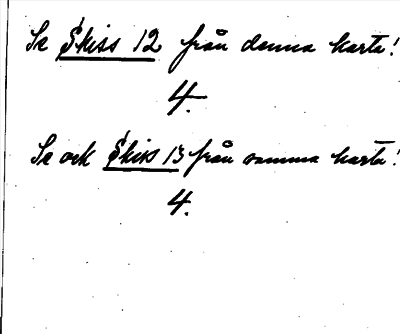 Se Skiss 12 från denna karta!
4.
Se ock Skiss 13 från samma karta!
4.